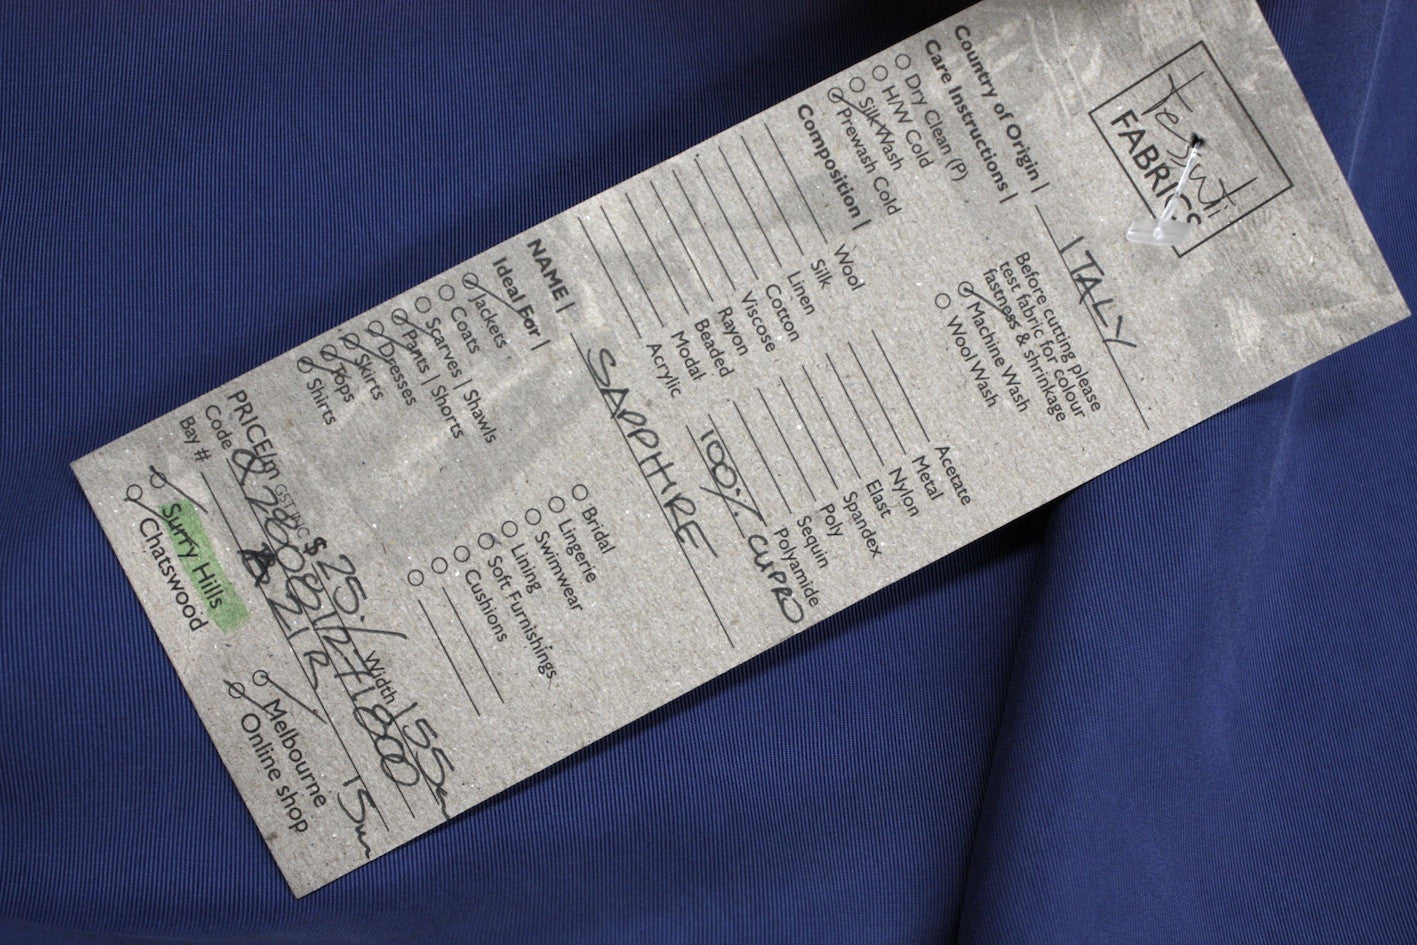 Tessuti
FABRICS
Country of Origin | ITALY
Care Instructions |
Dry Clean (P)
H/W Cold
Silk Wash
Prewash Cold
Before cutting please
test fabric for colour
fastness & shrinkage
Machine Wash
Wool Wash
Composition |
Wool
Silk
Linen
Cotton
Viscose
Rayon
Beaded
Modal
Acrylic
Acetate
Metal
Nylon
Elast
Spandex
Poly
Sequin
Polyamide
100% CUPRO
NAME | SAPPHIRE
Ideal For |
Jackets
Coats
Scarves | Shawls
Pants | Shorts
Dresses
Skirts
Tops
Shirts
Bridal
Lingerie
Swimwear
Lining
Soft Furnishings
Cushions
PRICE/m GST INC $ 25.- Width 155cm
Code
Bay # 15m
Surry Hills
Chatswood
Melbourne
Online shop